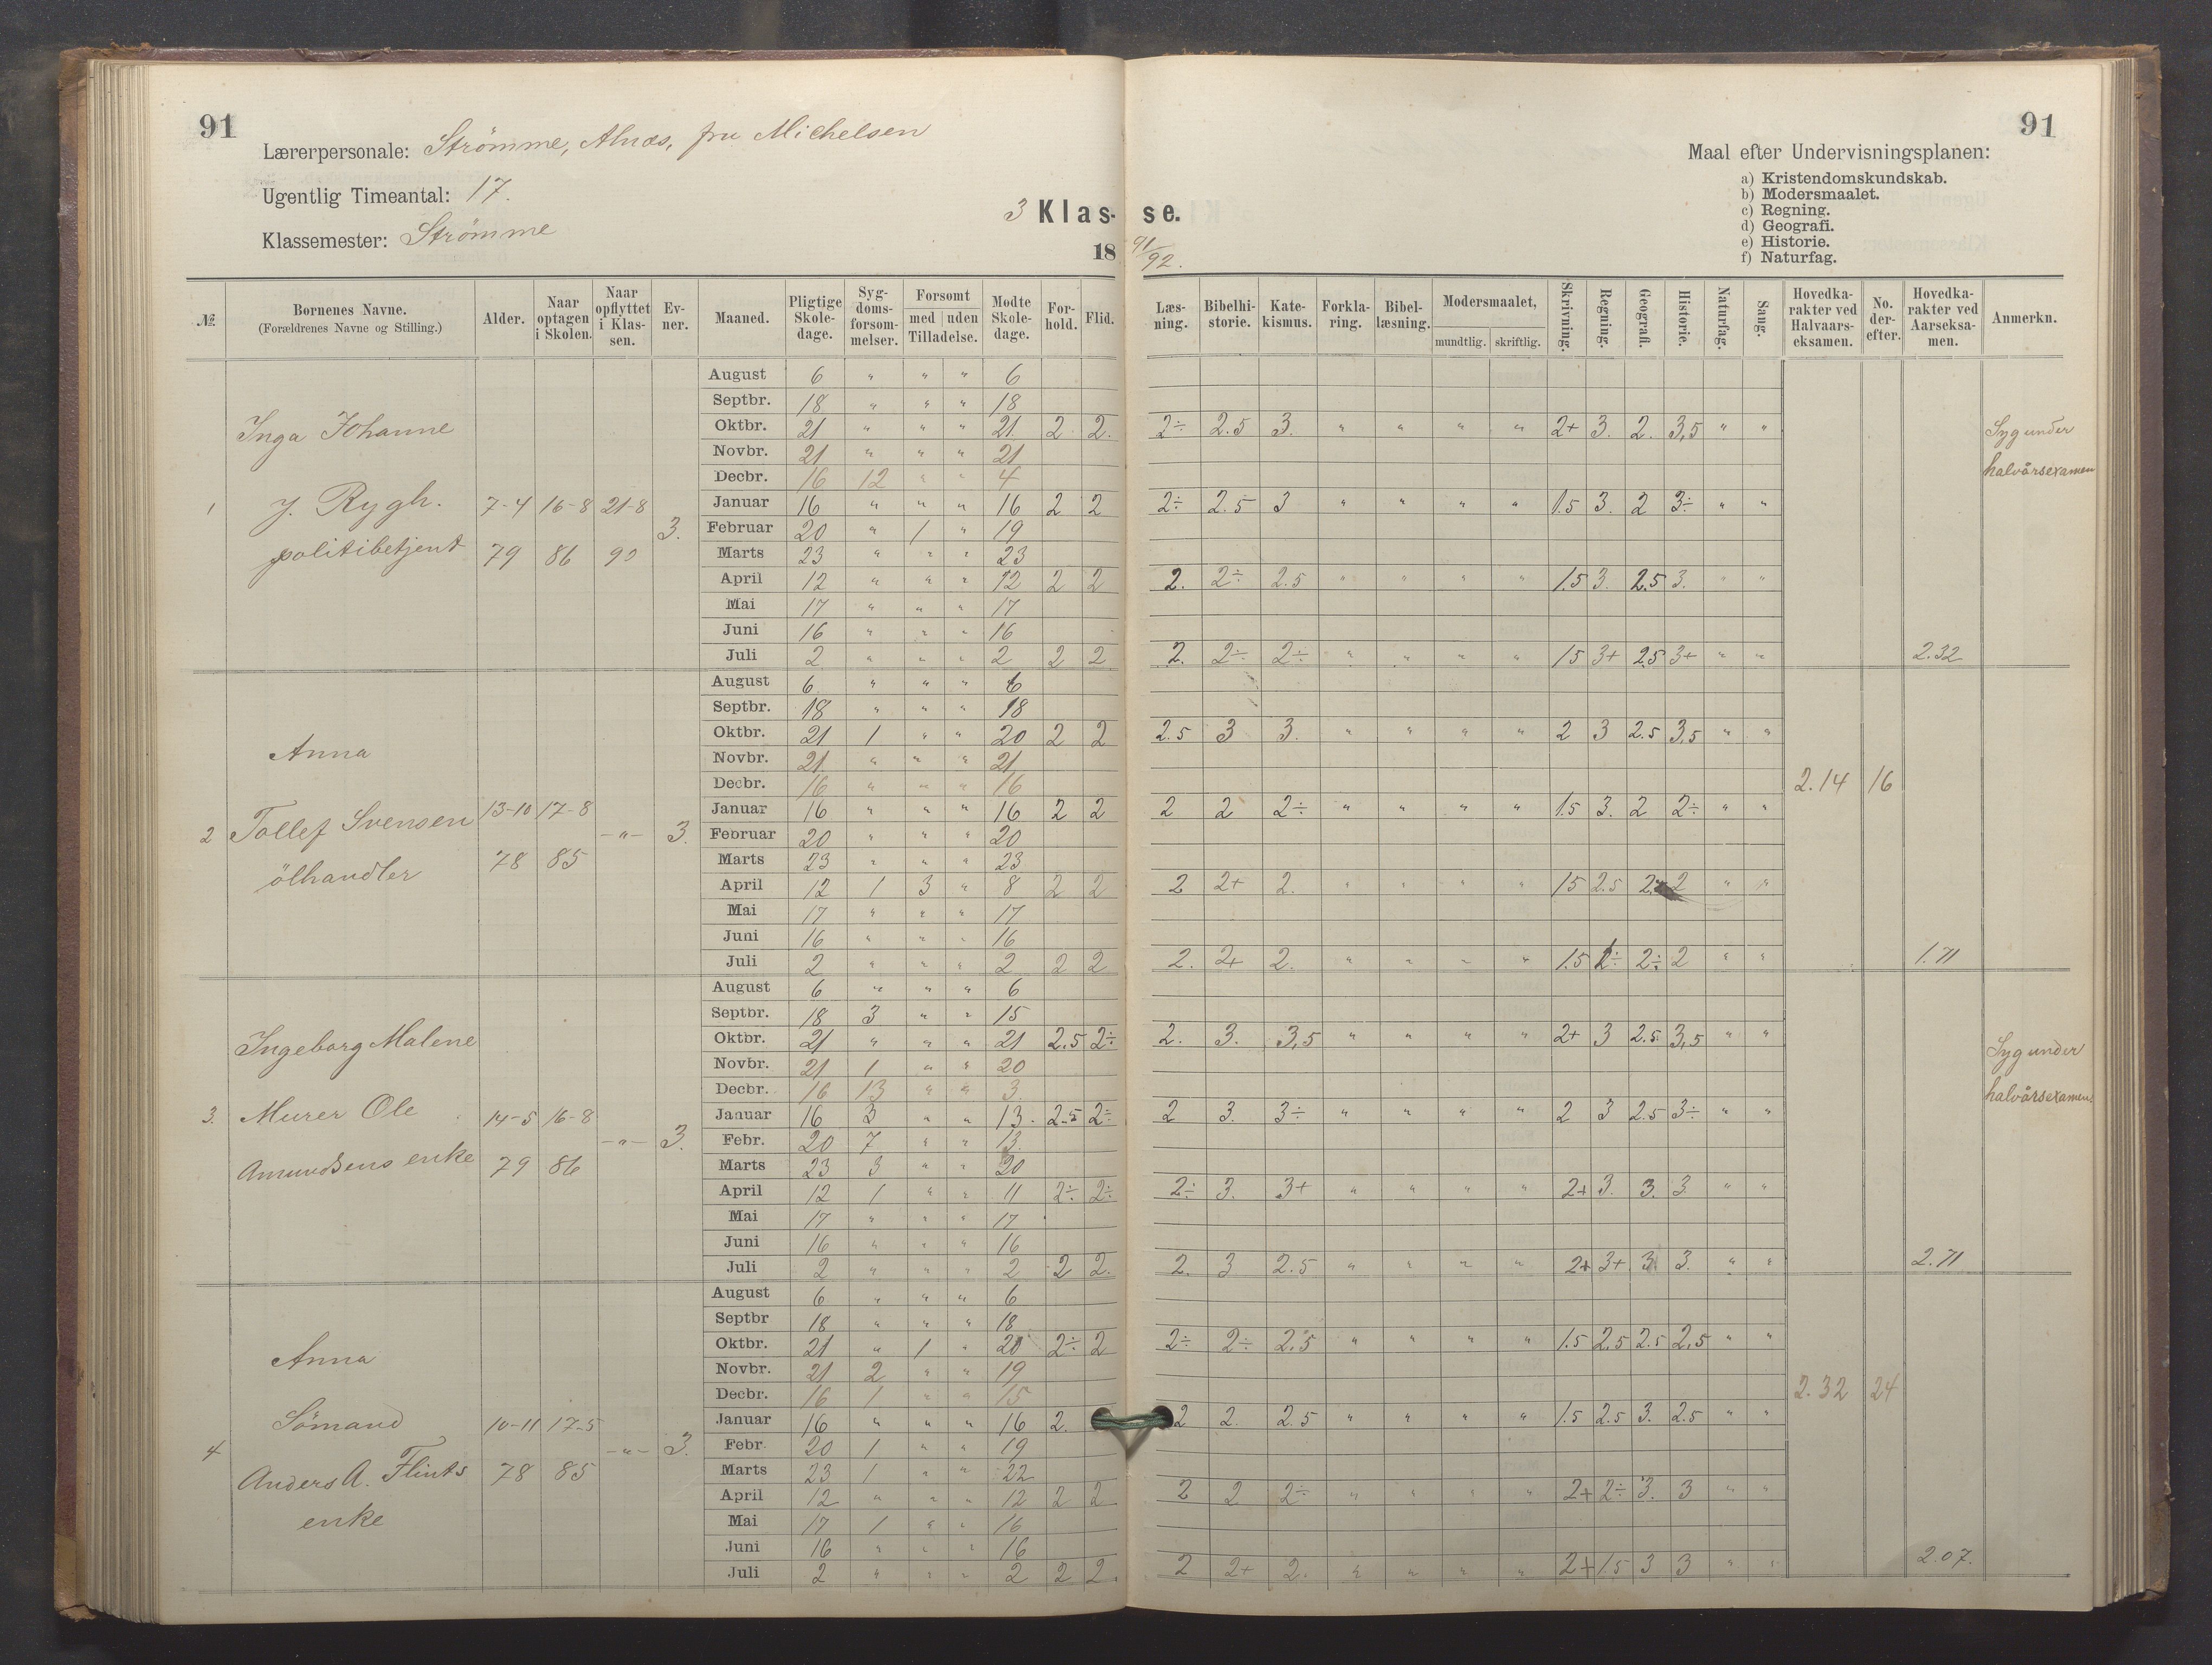 91
91
Lærerpersonale: Strömme, Alnæs, fru Michelsen
Ugentlig Timeantal: 17.
Klassemester: Strömme
3 Klasse.
18 91/92.
Maal efter Undervisningsplanen:
a) Kristendomskundskab.
b) Modersmaalet.
c) Regning.
d) Geografi.
e) Historie.
f) Naturfag.
№ | Børnenes Navne. (Forældrenes Navne og Stilling.) | Alder. | Naar optagen i Skolen. | Naar opflyttet i Klassen. | Evner. | Maaned. | Pligtige Skoledage. | Sygdomsforsømmelser. | Forsømt med uden Tilladelse. | Mødte Skoledage. | Forhold. | Flid. | Læsning. | Bibelhistorie. | Katekismus. | Forklaring. | Bibellæsning. | Modersmaalet, mundtlig. skriftlig. | Skrivning. | Regning. | Geografi. | Historie. | Naturfag. | Sang. | Hovedkarakter ved Halvaarseksamen. | No. derefter. | Hovedkarakter ved Aarseksamen. | Anmerkn.
1 Inga Johanne
J. Rygh.
politibetjent
7-4 79 | 16-8 86 | 21-8 90 | 3.
August 6 " " " 6
Septbr. 18 " " " 18
Oktbr. 21 " " " 21. 2 2. 2÷ 2.5 3. " " " " 2+ 3. 2. 3,5 " "
Novbr. 21 " " " 21
Decbr. 16 12 " " 4
Januar 16 " " " 16 2 2 2÷ 2.5 3 " " " " 1.5 3. 2 3÷ " "
Februar 20 " 1 " 19
Marts 23 " " " 23
April 12 " " " 12 2 2 2. 2÷ 2.5 " " " " 1.5 3. 2.5 3. " "
Mai 17 " " " 17
Juni 16 " " " 16
Juli 2 " " " 2 2 2 2. 2÷ 2÷ " " " " 15 3+ 2.5 3+ " " 2.32
Syg under
halvårsexamen
2 Anna
Tollef Svensen
ölhandler
13-10 78 | 17-8 85 | -"- | 3.
August 6 " " " 6
Septbr. 18 " " " 18
Oktbr. 21 1 " " 20 2 2 2.5 3 3. " " " " 2 3 2.5 3,5 " "
Novbr. 21 " " " 21
Decbr. 16 " " " 16 2.14 16
Januar 16 " " " 16 2 2 2 2 2÷ " " " " 1.5 3. 2 2÷ " "
Februar 20 " " " 20
Marts 23 " " " 23
April 12 1 3 " 8 2 2 2 2+ 2. " " " " 15 2.5 2 2 " "
Mai 17 " " " 17
Juni 16 " " " 16
Juli 2 " " " 2 2 2 2. 2+ 2. " " " " 1.5 2÷ 2÷ 2 " " 1.71
3. Ingeborg Malene
Murer Ole
Amundsens enke
14-5 79 | 16-8 86 | -"- | 3.
August 6 " " " 6
Septbr. 18 3 " " 15
Oktbr. 21 " " " 21 2.5 2÷ 2. 3. 3,5 " " " " 2+ 3 2.5 3,5 " "
Novbr. 21 1 " " 20
Decbr. 16 13 " " 3
Januar 16 3 " " 13. 2.5 2÷ 2 3. 3÷ " " " " 2 3 2.5 3÷ " "
Febr. 20 7 " " 13.
Marts 23 3 " " 20
April 12 1 " " 11 2÷ 2÷ 2÷ 3. 3+ " " " " 2+ 3. 3. 3. " "
Mai 17 " " " 17
Juni 16 " " " 16
Juli 2 " " " 2 2 2. 2. 3 2.5 " " " " 2+ 3+ 3 3. " " 2.71
Syg under
halvårsexamen
4 Anna
Sömand
Anders A. Flints
enke
10-11 78 | 17-5 85 | -"- | 3.
August 6 " " " 6
Septbr 18 " " " 18
Oktbr. 21 " 1 " 20 2÷ 2 2÷ 2÷ 2.5 " " " " 1.5 2.5 2.5 2,5 " "
Novbr. 21 2 " " 19
Decbr. 16 1 " " 15 2.32 24
Januar 16 " " " 16 2. 2 2. 2.5 " " " " 1.5 2.5 3. 2.5 " "
Febr. 20 1 " " 19
Marts 23 1 " " 22
April 12 " " " 12 2 2 2 2 2÷ " " " " 2+ 2÷ 3. 3 " "
Mai 17 1 " " 16
Juni 16 " " " 16
Juli 2 " " " 2 2 2. 2 2+ 2. " " " " 2+ 1.5 3 3 " " 2.07.